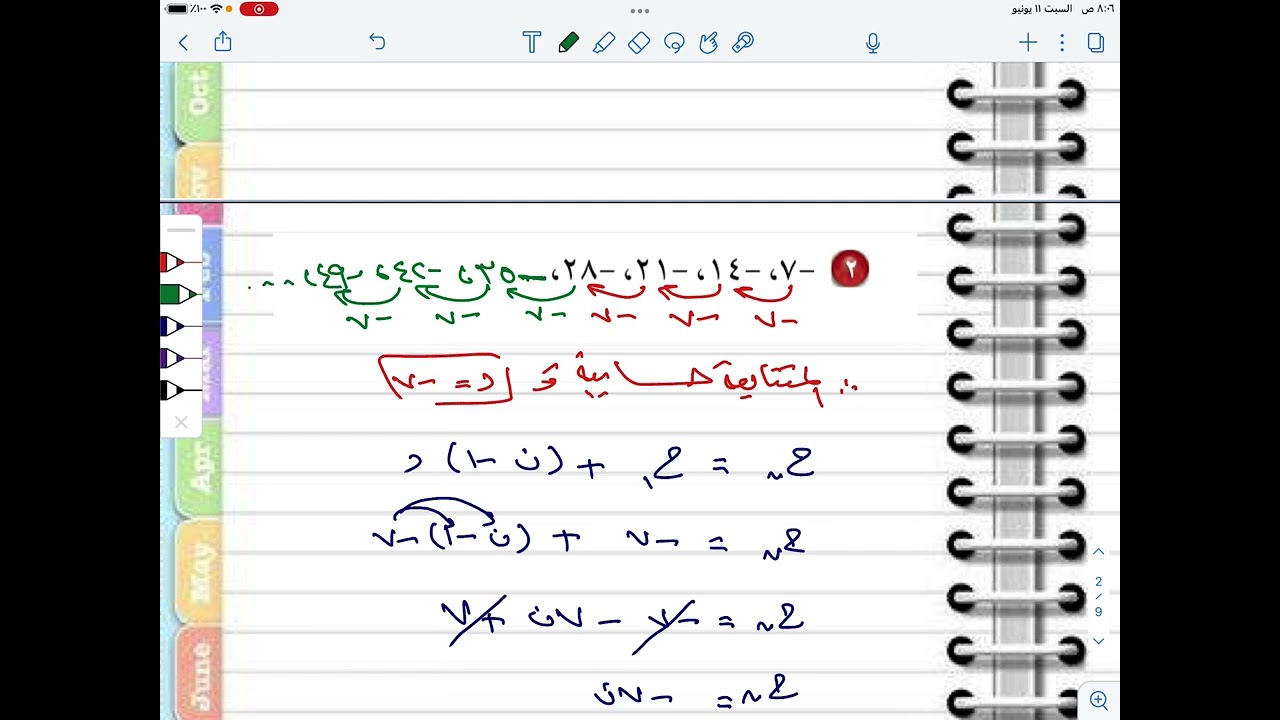 ٨:٠٦ ص السبت ١١ يونيو
٪١٠٠
Oct
٢ -٧، -١٤، -٢١، -٢٨، -٣٥، -٤٢، -٤٩، ...
-٧ -٧ -٧ -٧ -٧ -٧
∴ المتتابعة حسابية و د = -٧
حن = ح١ + (ن - ١) د
حن = -٧ + (ن - ١) -٧
حن = -٧ - ٧ن + ٧
حن = -٧ن
Apr
May
June
2/9